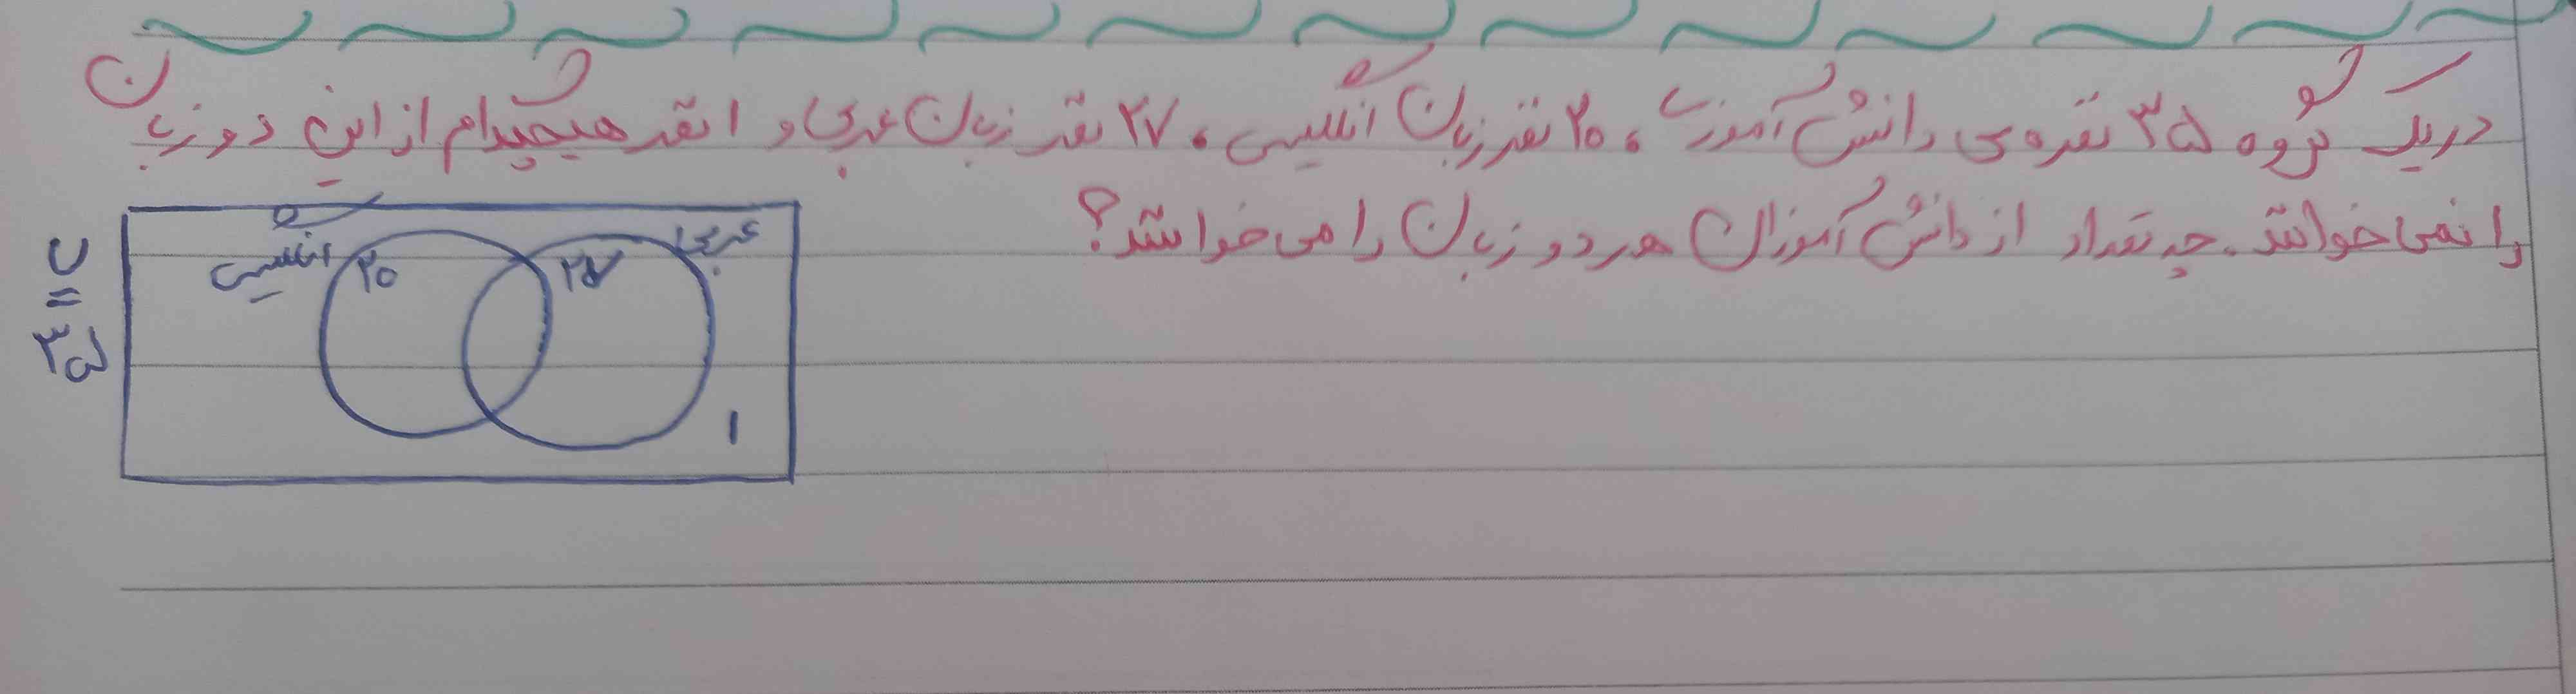 در یک گروه ۳۵ نفره‌ی دانش آموزی، ۲۰ نفر زبان انگلیسی، ۲۷ نفر زبان عربی و ۱ نفر هیچکدام از این دو زبان
را نمی خوانند. چه تعداد از دانش آموزان هر دو زبان را می خوانند؟
انگلیسی ۲۰ ۲۷ عربی
U = ۳۵
۱